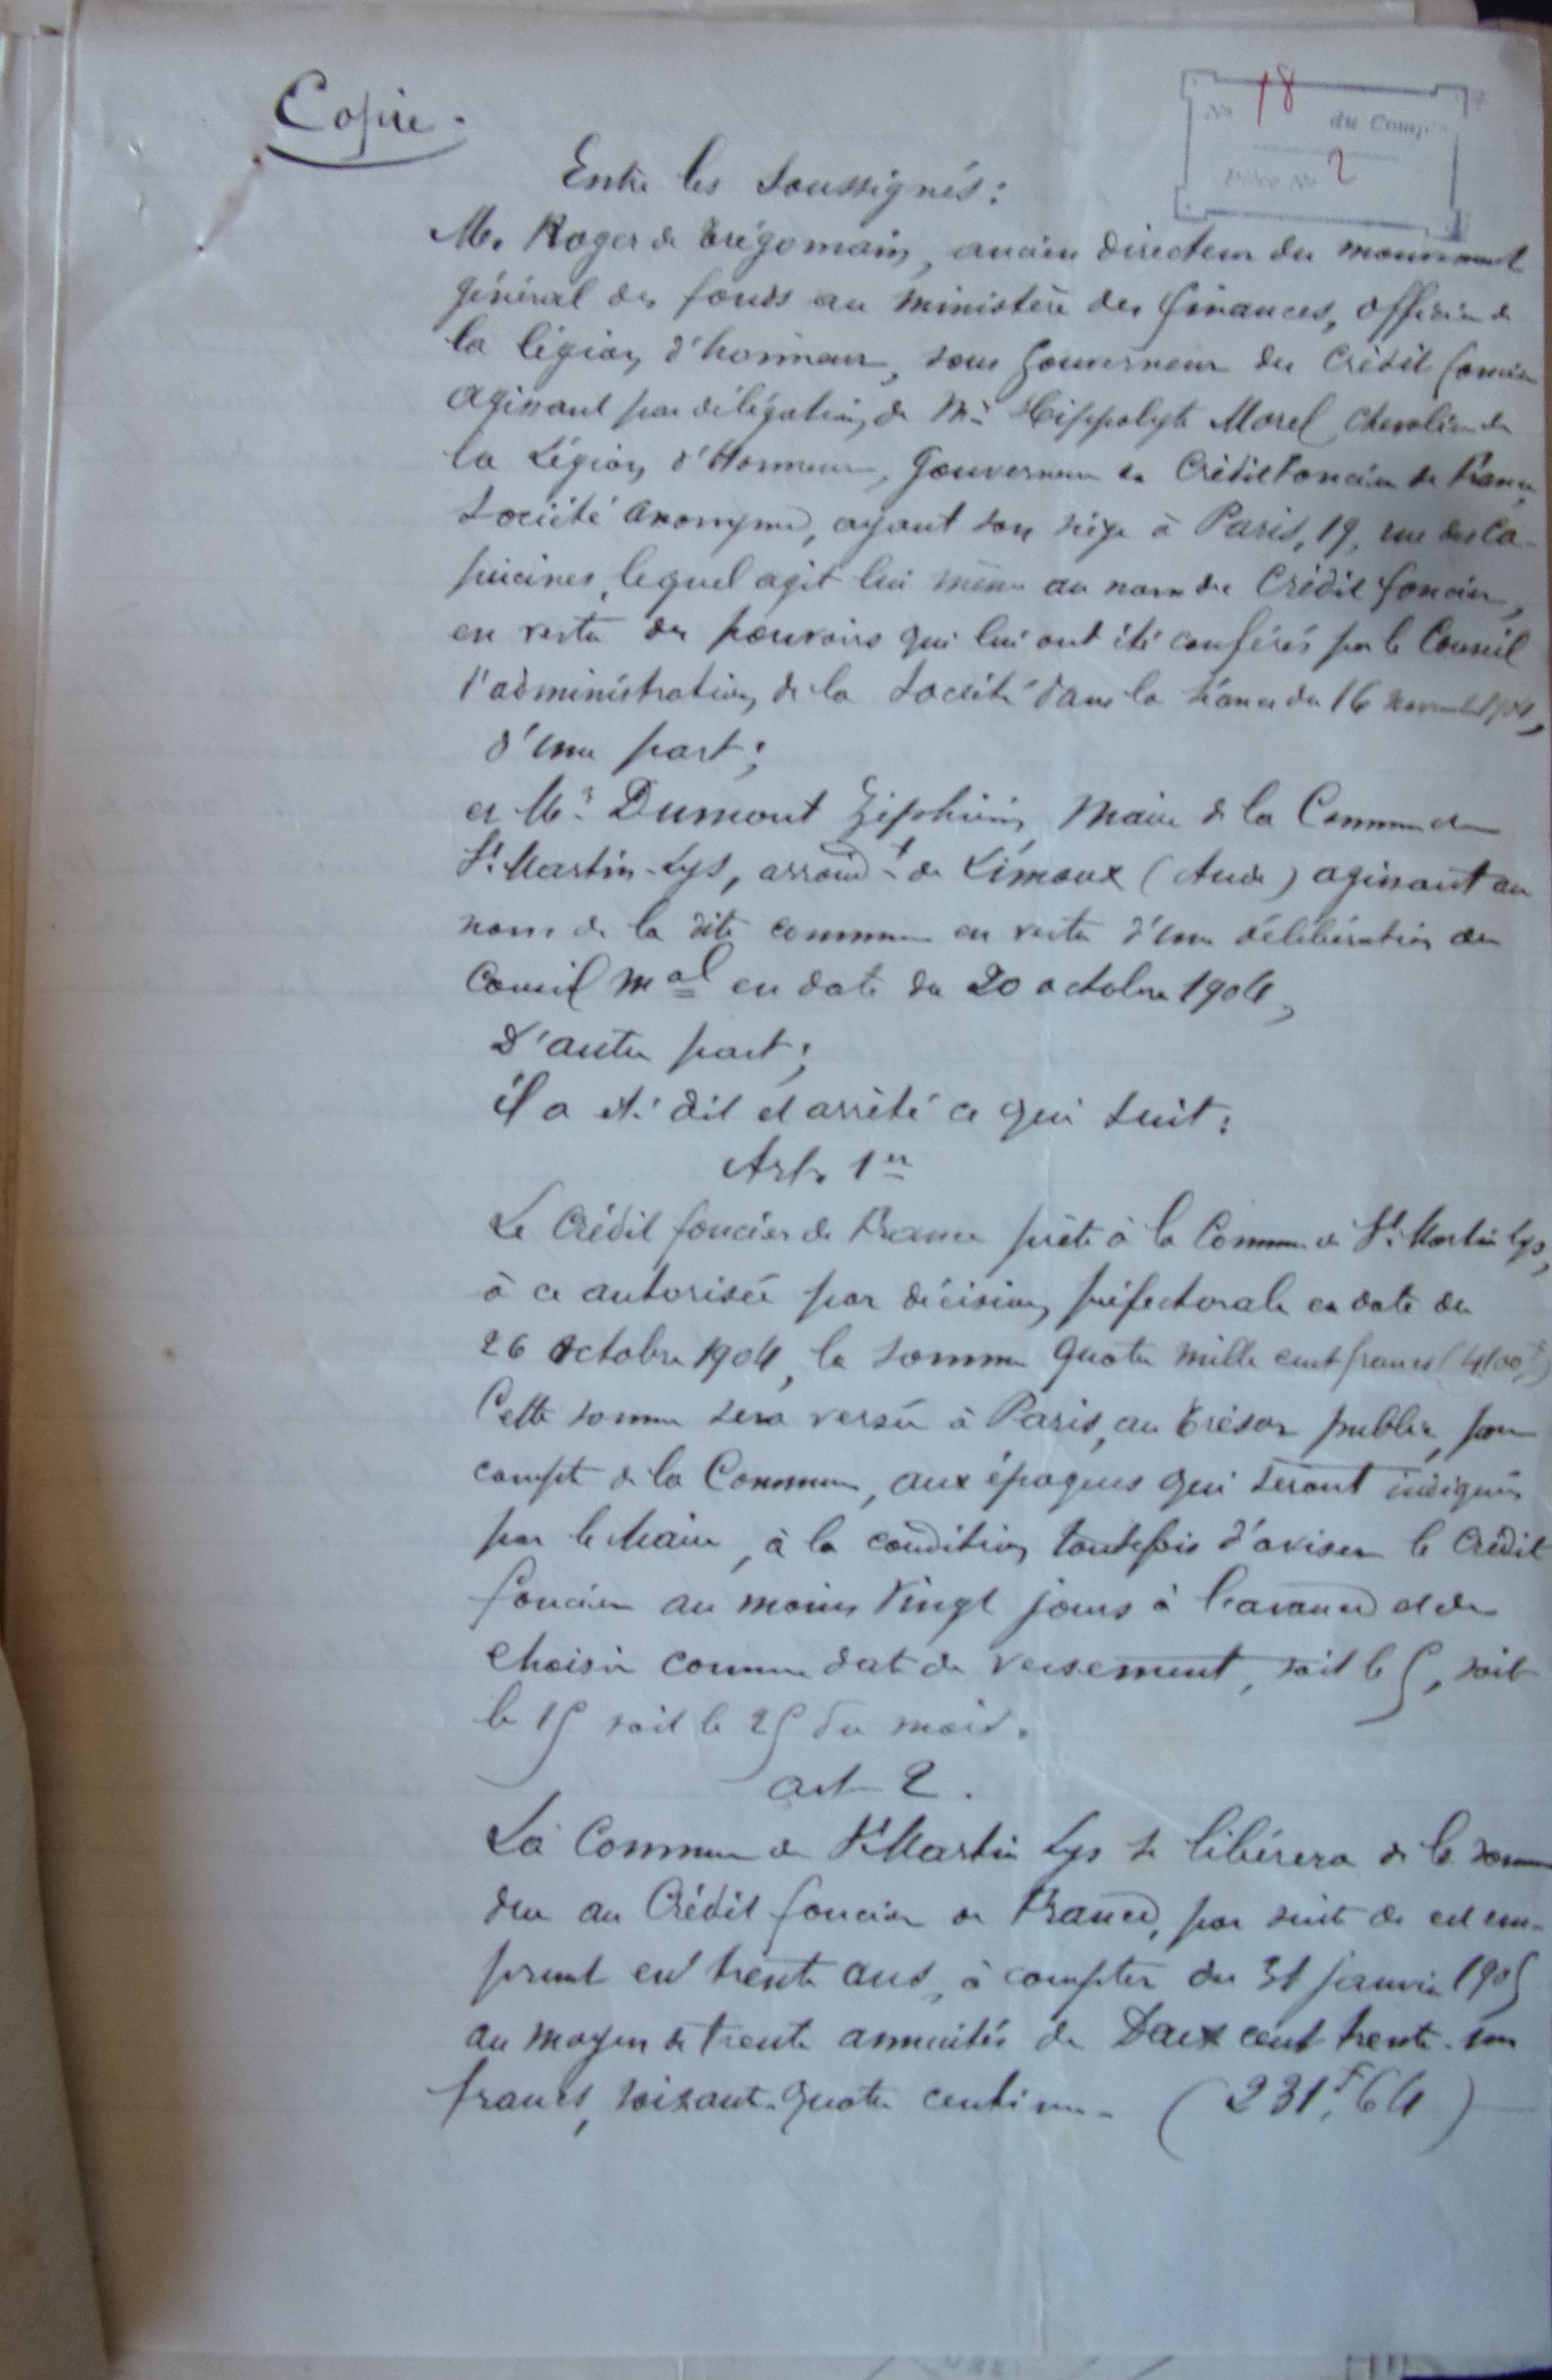 Copie.
No 18 du Comp
Pièce No 2
Entre les soussignés:
Mr Roger de Trégomain, ancien directeur du mouvement
général des fonds au ministère des finances, officier de
la légion d'honneur, sous Gouverneur du Crédit foncier
agissant par délégation de Mr Hippolyte Morel chevalier de
la Légion d'Honneur, Gouverneur du Crédit Foncier de France,
Société anonyme, ayant son siège à Paris, 19, rue des Ca-
pucines, lequel agit lui même au nom du Crédit foncier,
en vertu des pouvoirs qui lui ont été conférés par le Conseil
d'administration de la Société dans la séance du 16 novembre 1904,
d'une part;
et Mr Dumont Zéphirin Maire de la Commune de
St Martin-Lys, arrondt de Limoux (Aude) agissant au
nom de la dite commune en vertu d'une délibération du
Conseil mal en date du 20 octobre 1904,
D'autre part;
il a été dit et arrêté ce qui suit:
Art. 1er
Le Crédit foncier de France prête à la Commune de St Martin Lys,
à ce autorisée par décision préfectorale en date du
26 octobre 1904, la somme quatre mille cent francs (4100f)
Cette somme sera versée à Paris, au trésor public, pour
compte de la Commune, aux époques qui seront indiquées
par le Maire, à la condition toutefois d'aviser le Crédit
foncier au moins vingt jours à l'avance et de
choisir comme date de versement, soit le 5, soit
le 15 soit le 25 du mois.
art 2.
La Commune de St Martin Lys se libérera de la somme
due au Crédit foncier de France, par suite de cet em-
prunt en trente ans, à compter du 31 janvier 1905
au moyen de trente annuités de Deux cent trente-un
francs, soixante-quatre centimes (231f,64)